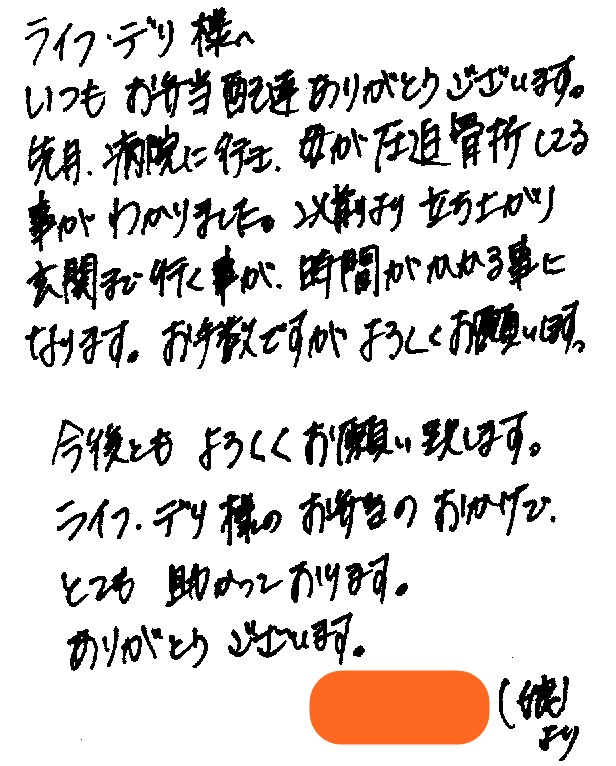 ライフ・デリ様へ
いつもお弁当配達ありがとうございます。
先月、病院に行き、母が圧迫骨折してる
事がわかりました。以前より立ち上がり
玄関まで行く事が、時間がかかる事に
なります。お手数ですがよろしくお願いします。
今後ともよろしくお願い致します。
ライフ・デリ様のお弁当のおかげで、
とても助かっております。
ありがとうございます。
より